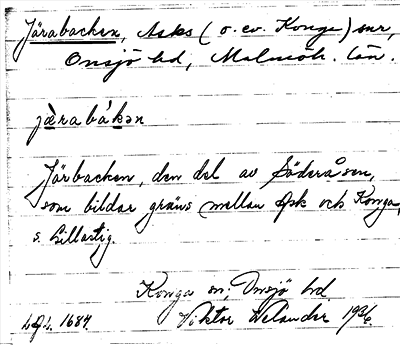 Järabacken, Asks (o. ev. Konga) snr,
Onsjö hd, Malmöh. län.
jæ̀rabákən
Järbacken, den del av Söderåsen,
som bildar gräns mellan Ask och Konga,
s. Lillastig.
Konga sn, Onsjö hd
L.A.L. 1684. Viktor Welander 193